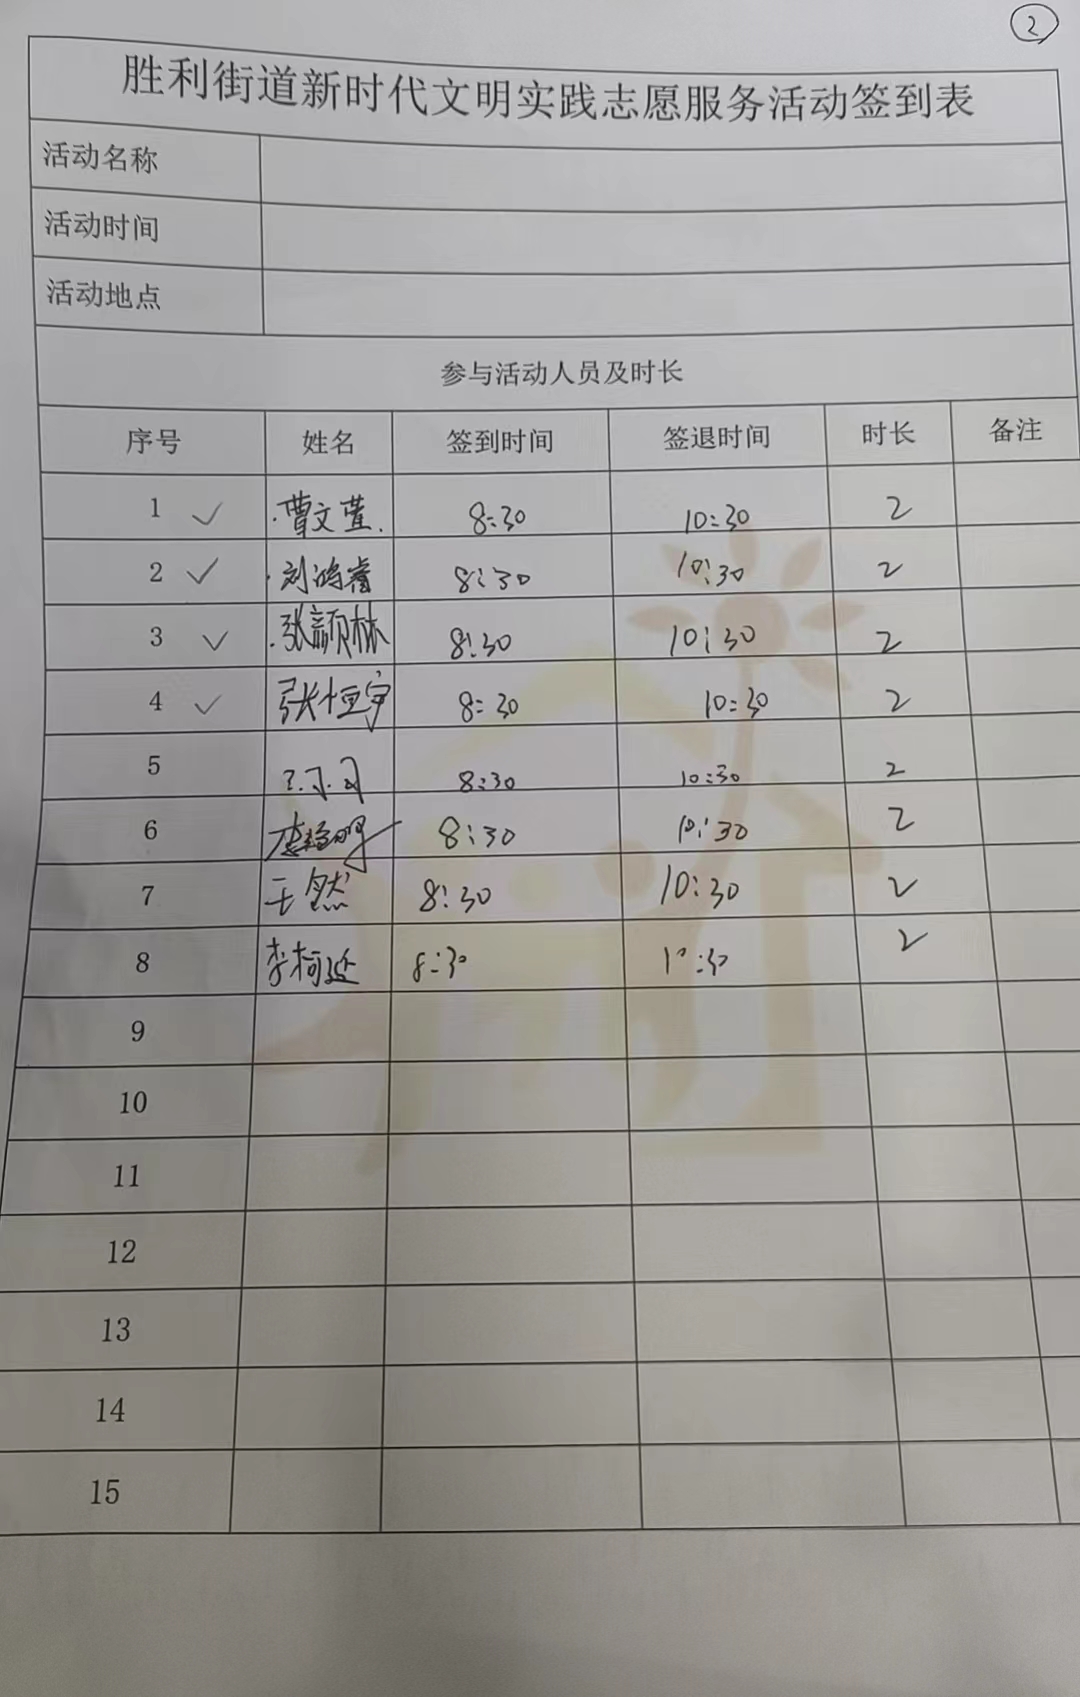 ②
胜利街道新时代文明实践志愿服务活动签到表
活动名称
活动时间
活动地点
参与活动人员及时长
序号 姓名 签到时间 签退时间 时长 备注
1 ✓ 曹文萱 8:30 10:30 2
2 ✓ 刘鸿睿 8:30 10:30 2
3 ✓ 张颢林 8:30 10:30 2
4 ✓ 张恒宇 8:30 10:30 2
5 8:30 10:30 2
6 8:30 10:30 2
7 王然 8:30 10:30 2
8 李柯延 8:30 10:30 2
9
10
11
12
13
14
15